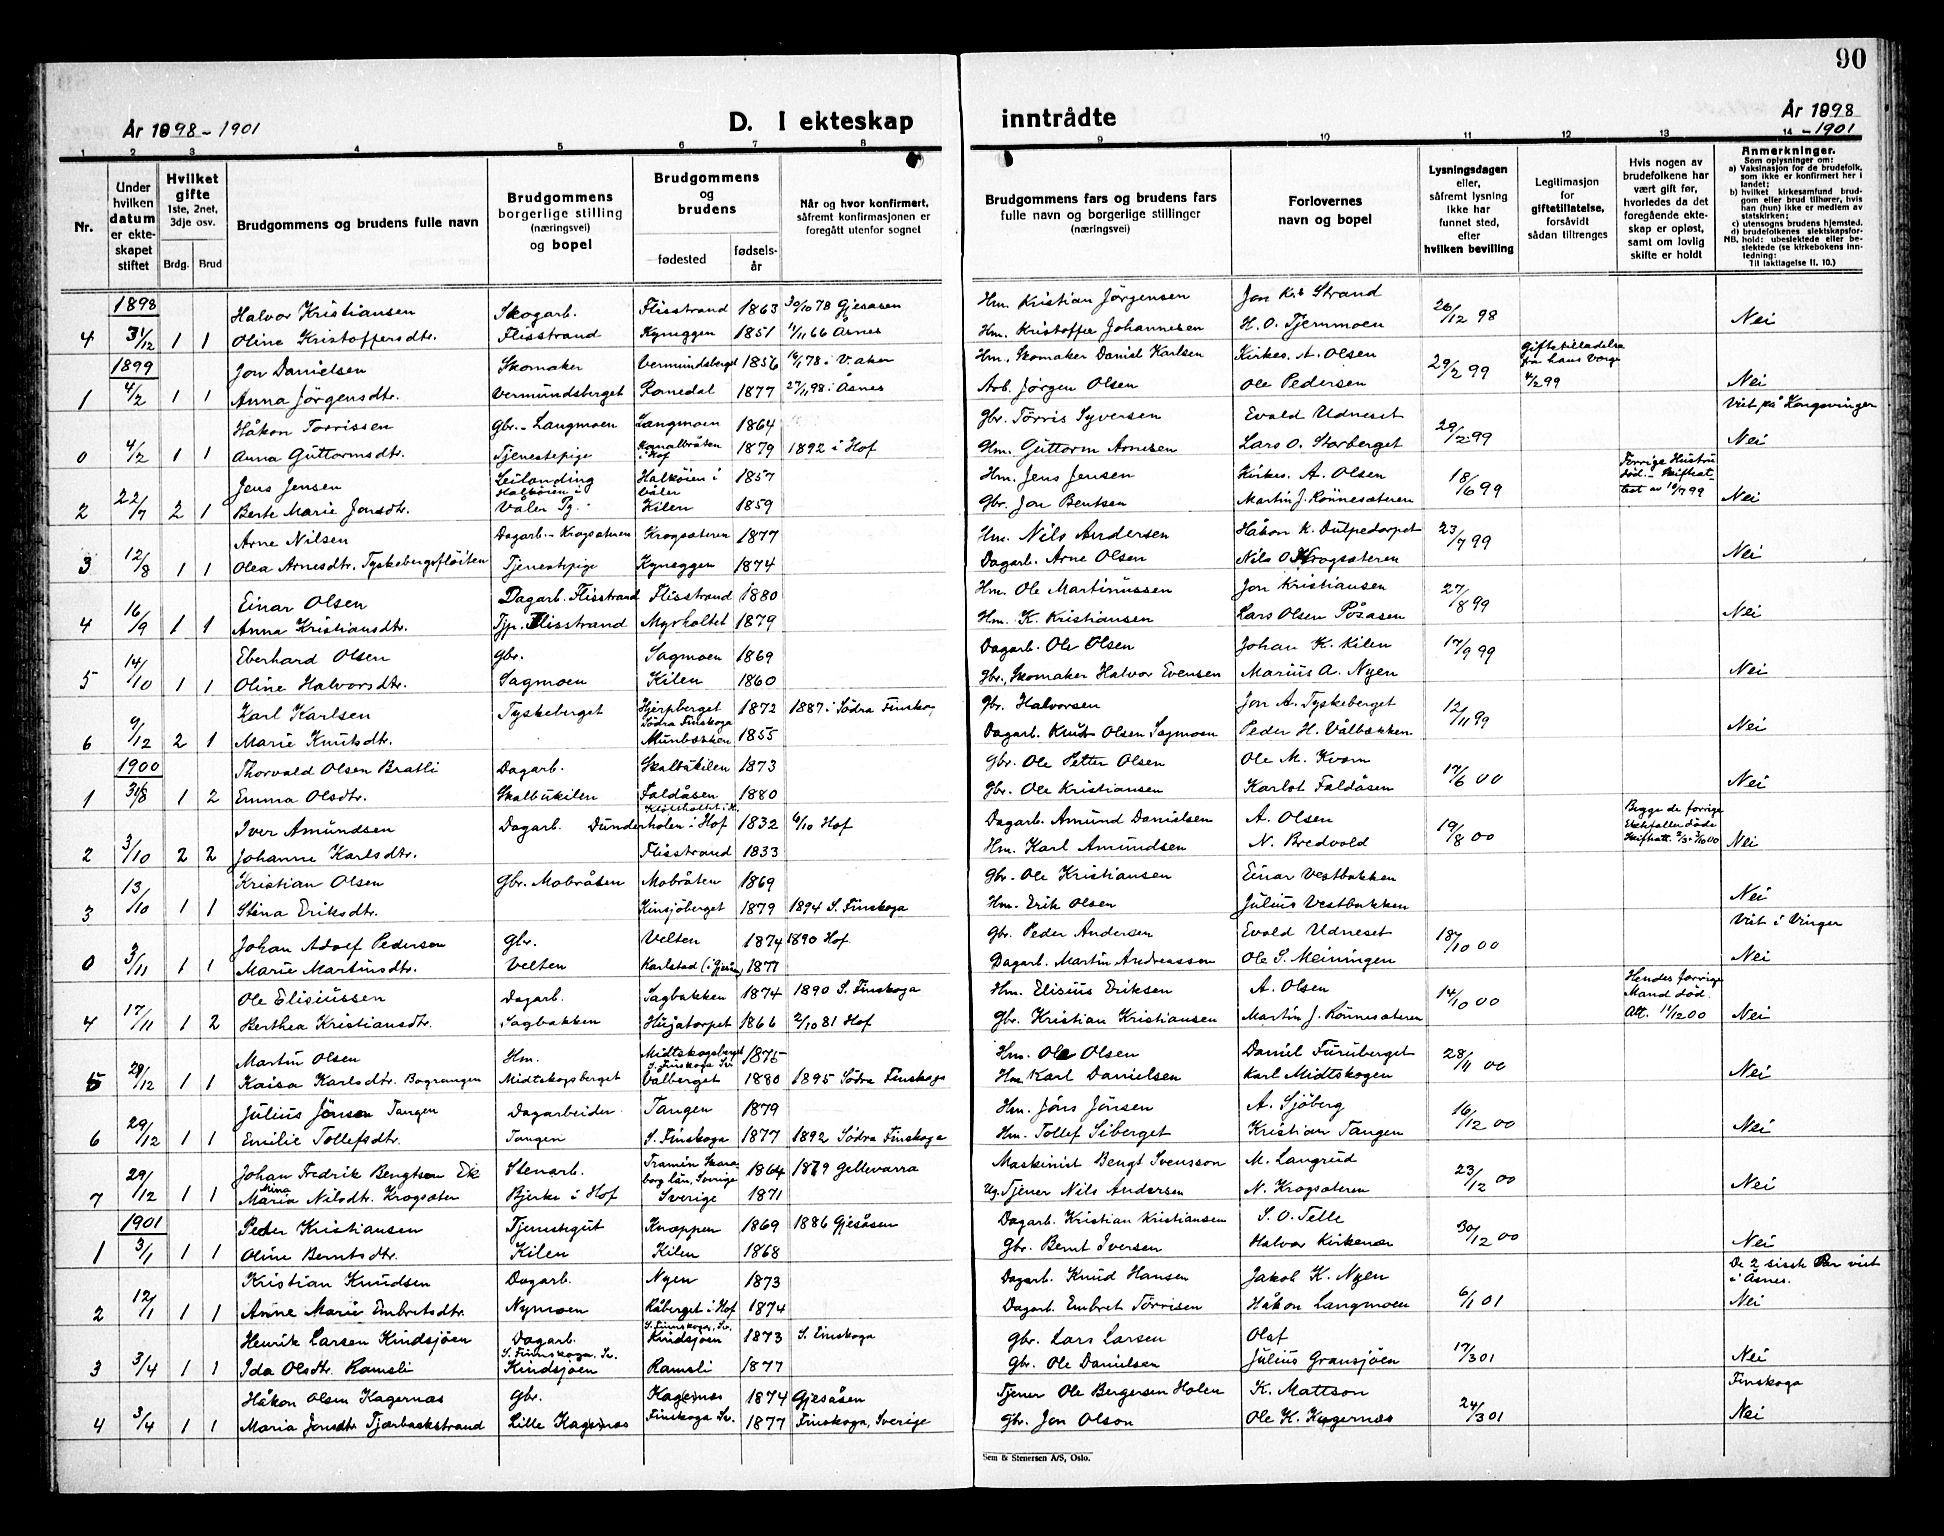 90
År 1898-1901
D. I ekteskap
inntrådte
År 1898
-1901
1 2 3 4 5 6 7 8 9 10 11 12 13 14
Nr.
Under hvilken datum er ekteskapet stiftet
Hvilket gifte
1ste, 2net, 3dje osv.
Brdg. Brud
Brudgommens og brudens fulle navn
Brudgommens
borgerlige stilling
(næringsvei)
og bopel
Brudgommens
og
brudens
fødested
fødselsår
Når og hvor konfirmert,
såfremt konfirmasjonen er
foregått utenfor sognet
Brudgommens fars og brudens fars
fulle navn og borgerlige stillinger
(næringsvei)
Forlovernes
navn og bopel
Lysningsdagen
eller,
såfremt lysning
ikke har
funnet sted,
efter
hvilken bevilling
Legitimasjon
for
giftetillatelse,
forsåvidt
sådan tiltrenges
Hvis nogen av
brudefolkene har
vært gift før,
hvorledes da det
foregående ekteskap er opløst,
samt om lovlig
skifte er holdt
Anmerkninger.
Som oplysninger om:
a) Vaksinasjon for de brudefolk, som ikke er konfirmert her i landet;
b) hvilket kirkesamfund brudgom eller brud tilhører, hvis han (hun) ikke er medlem av statskirken;
c) utensogns brudens hjemsted.
d) brudefolkenes slektskapsforhold: ubeslektede eller beslektede (se kirkebokens innledning:
NB.
Til iakttagelse II. 10.)
1898
Halvor Kristiansen Skogarb. Flisstrand 1863 30/10 78 Gjesåsen Hm. Kristian Jörgensen Jon Kr. Strand 26/12 98
4 31/12 1 1 Oline Kristoffersdtr. Flisstrand Kyneggen 1851 11/11 66 Åsnes Hm. Kristoffer Johannesen H. O. Tjernmoen Nei
1899
Jon Danielsen Skomaker Vermundsberget 1856 16/1 78 i V. aker Hm. Skomaker Daniel Karlsen Kirkes. A. Olsen 29/2 99 Giftetilladelse
1 4/2 1 1 Anna Jörgensdtr. Vermundsberget Romedal 1877 27/11 98 i Åsnes Arb. Jörgen Olsen Ole Pedersen 4/2 99 Nei
Håkon Torrissen Gbr. - Langmoen Langmoen 1864 Gbr. Törris Syversen Evald Udneset 29/2 99 Viet på Kongsvinger
0 4/2 1 1 Anna Guttormsdtr. Tjenestepige Kanalbråten i Hof 1879 1892 i Hof Hm. Guttorm Arnesen Lars O. Storberget Nei
Jens Jensen Leilending Halkoien i Våler 1857 Hm. Jens Jensen Kirkes. A. Olsen 18/6 99 Forrige Hustru
2 22/7 2 1 Berte Marie Jonsdtr. Halkoien i Våler Pg. Kilen 1859 Gbr. Jon Bentsen Martin J. Rönnesæteren Nei
Arne Nilsen Dagarb. - Krogsæteren Krogsæteren 1877 Hm. Nils Andersen Håkon K. Dulpedorpet 23/7 99
3 12/8 1 1 Olea Arnesdtr. Tyskebergsflöiten Tjenestepige Kyneggen 1874 Dagarb. Arne Olsen Nils O Krogsæteren Nei
Einar Olsen Dagarb. Flisstrand Flisstrand 1880 Hm. Ole Martinussen Jon Kristiansen 27/8 99
4 16/9 1 1 Anna Kristiansdtr. Tjp. Flisstrand Myrholtet 1879 Hm. K. Kristiansen Lars Olsen Påsasen Nei
Eberhard Olsen Gbr. Sagmoen 1869 Dagarb. Ole Olsen Johan K. Kilen 17/9 99
5 14/10 1 1 Oline Halvorsdtr. Sagmoen Kilen 1860 Gbr. Skomaker Halvor Evensen Marius A. Nyen Nei
Karl Karlsen Tyskeberget Hjerpberget Södra Finskoga 1872 1887 i Södra Finskog Gbr. Halvorsen Jon A. Tyskeberget 12/11 99
6 9/12 2 1 Marie Knutsdtr. Munbækken 1855 Dagarb. Knut Olsen Sagmoen Peder H. Vålbækken Nei
1900
Thorvald Olsen Bratli Dagarb. Skalbukilen 1873 Gbr. Ole Petter Olsen Ole M. Kvom 17/6 00
1 31/8 1 2 Emma Olsdtr. Skalbukilen Faldåsen 1880 Gbr. Ole Kristiansen Karlot Faldåsen Nei
Iver Amundsen Dagarb. Dunderholen i Hof 1832 6/10 Hof Dagarb. Amund Danielsen A. Olsen 19/8 00 Begge de forrige
2 3/10 2 2 Johanne Karlsdtr. Flisstrand 1833 Hm. Karl Amundsen N. Bredvold Nei
Kristian Olsen Gbr. Mobråten Mobråten 1869 Gbr. Ole Kristiansen Einar Vestbakken
3 13/10 1 1 Stina Eriksdtr. Kinsjöberget 1879 1894 S. Finskoga Hm. Erik Olsen Julius Vestbakken Nei
Johan Adolf Pedersen Gbr. Velten 1874 1890 Hof Gbr. Peder Andersen Evald Udneset 18/10 00 Viet i Vinger
0 3/11 1 1 Marie Martinsdtr. Velten Karlstad (i Gjesås) 1877 Dagarb. Martin Andreassen Ole S. Meiningen Nei
Ole Elisiussen Dagarb. Sagbakken 1874 1890 S. Finskoga Hm. Elisius Eriksen A. Olsen 14/10 00 Hendes forrige Mand död.
4 17/11 1 2 Berthea Kristiansdtr. Sagbakken Hujatorpet 1866 2/10 81 Hof Gbr. Kristian Kristiansen Martin J. Rönnesæteren Att. 11/12 00 Nei
Martin Olsen Hm. Midtskogsberget 1875 Hm. Ole Olsen Daniel Furuberget 28/11 00
5 29/12 1 1 Kaisa Karlsdtr. Bograngen Midtskogsberget S. Finskoga Sv. Valberget 1880 1895 Södra Finskoga Hm. Karl Danielsen Karl Midtskogen Nei
Julius Jönsen Tangen Dagarbeider. Tangen 1879 Hm. Jöns Jönsen A. Sjöberg 16/12 00
6 29/12 1 1 Emilie Tollefsdtr. Tangen S. Finskoga 1877 1892 Södra Finskoga Hm. Tollef Siberget Kristian Tangen Nei
Johan Fredrik Bengtsen Ek Stenarb. Tramén Skaraborg län, Sverige 1864 1879 Gellevarra Maskinist Bengt Svensson M. Langrud 23/12 00
7 29/12 1 1 Mina Maria Nilsdtr. Krogsæter Bjerke i Hof Sverige 1871 Ug. Tjener Nils Andersen N. Krogsæteren Nei
1901
Peder Kristiansen Tjenestgut Knappen 1869 1886 Gjesåsen Dagarb. Kristian Kristiansen S. O. Telle 30/12 00
1 3/1 1 1 Oline Berntsdtr. Kilen Kilen 1868 Gbr. Bernt Iversen Halvor Kirkenær Nei
Kristian Knudsen Dagarb. Nyen 1873 Dagarb. Knud Hansen Jakob K. Nyen 6/1 01 De 2 sisste Par viet i Åsnes.
2 12/1 1 1 Anne Marie Embretsdtr. Nymoen Råberget i Hof 1874 Dagarb. Embret Törrisen Håkon Langmoen Nei
Henrik Larsen Kindsjöen Dagarb. S. Finnskoga, Sv. Kindsjöen 1873 S. Finskoga Gbr. Lars Larsen Olaf 17/3 01
3 3/4 1 1 Ida Olsdtr. Ramsli S. Finnskoga. Sv. Kindsjöen Ramsli 1877 Gbr. Ole Danielsen Julius Gransjöen Nei
Håkon Olsen Kagernæs Gbr. Kagernæs 1874 Gjesåsen Tjener Ole Bergersen Holen K. Mattson 24/3 01 Finskoga
4 3/4 1 1 Maria Jonsdtr Tjærbackstrand Lille Kagernæs Finskoga Sv. 1877 Finskoga, Sverige Gbr. Jon Olson Ole K. Kagernæs Nei
Sem & Stenersen A/S, Oslo.